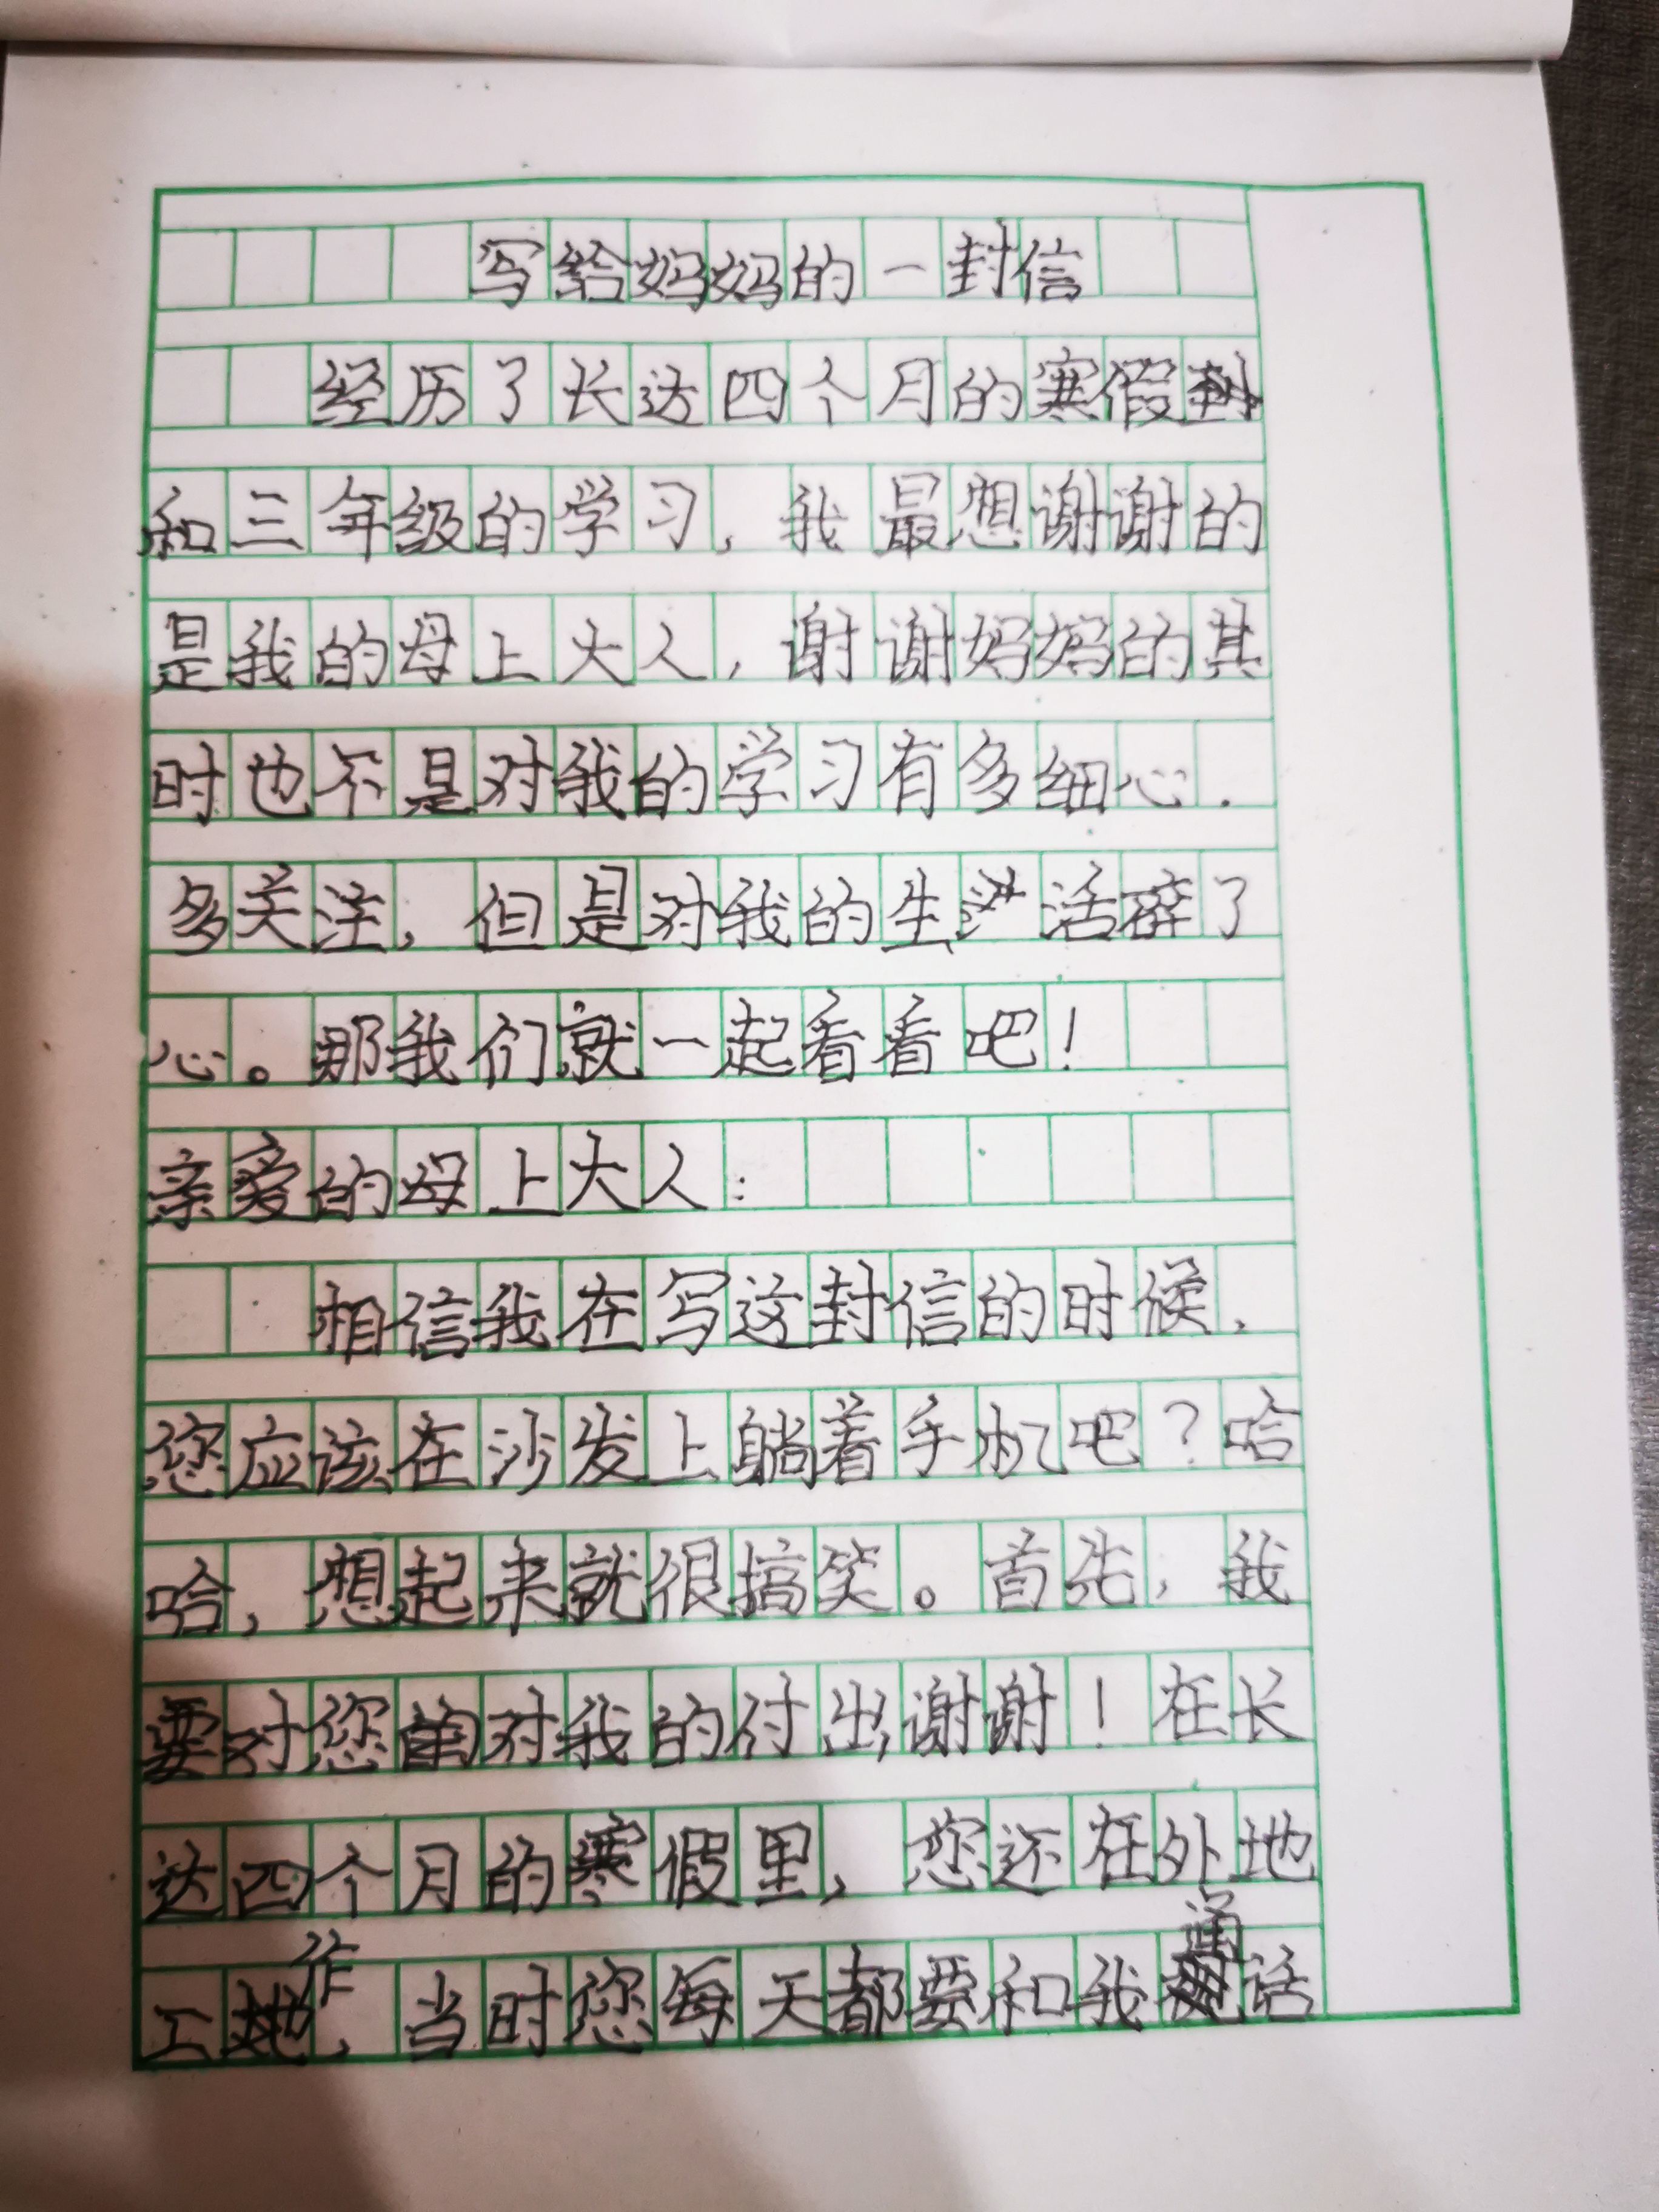 写给妈妈的一封信
经历了长达四个月的寒假
和三年级的学习,我最想谢谢的
是我的母上大人,谢谢妈妈的其
时也不是对我的学习有多细心.
多关注,但是对我的生活碎了
心。那我们就一起看看吧!
亲爱的母上大人:
相信我在写这封信的时候,
您应该在沙发上躺着手机吧?哈
哈,想起来就很搞笑。首先,我
要对您的对我的付出谢谢!在长
达四个月的寒假里,您还在外地
工作,当时您每天都要和我通话